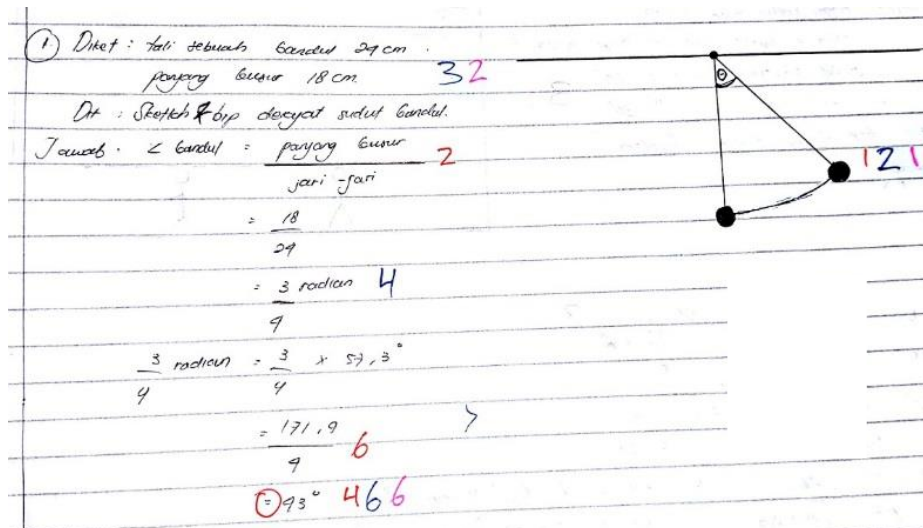 1. Diket : tali sebuah bandul 24 cm .
panjang busur 18 cm. 32
θ
Dit : Sketch & brp derajat sudut bandul.
Jawab . ∠ bandul = panjang busur 2
jari - jari
121
= 18
24
= 3 radian 4
4
3 radian = 3 x 57,3°
4 4
= 171,9 6
4
= 43° 466